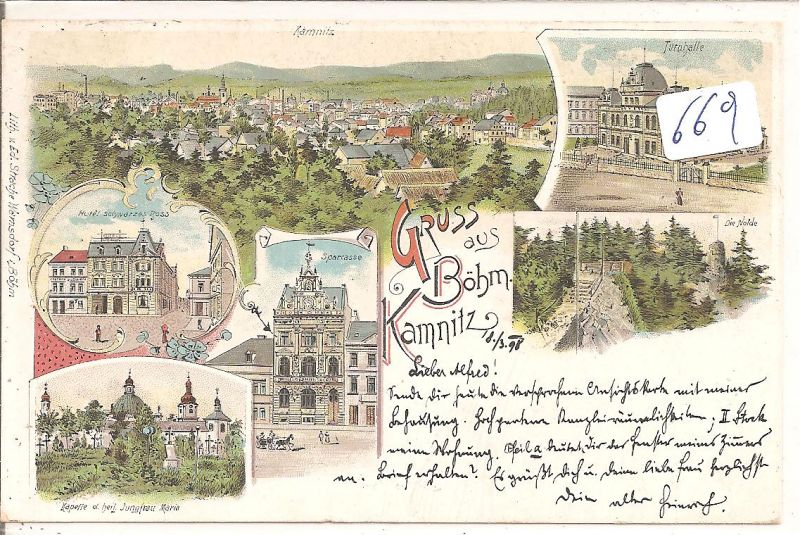 Kamnitz
Turnhalle
669
Lith. v. Ed. Strache Warnsdorf i/Böhm
Hotel schwarzes Ross
Sparcasse
Die Nolde
Gruss
aus
Böhm.
Kamnitz
8/3. 98
Lieber Alfred!
Sende dir heute die versprochene Ansichtskarte mit meiner
Behausung. Hochparterre Kanzleiräumlichkeiten, II Stock
meine Wohnung. Pfeil a deutet dir das Fenster meines Zimmers
an. Brief erhalten? Es grüßt dich u. deine liebe Frau herzlichst
Dein alter Heinrich.
Kapelle d. heil. Jungfrau Maria